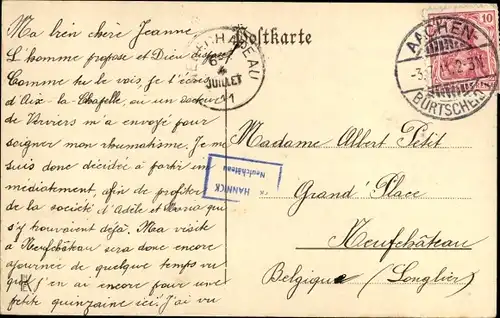 Postkarte
Ma bien chère Jeanne
L'homme propose et Dieu dispose
Comme tu le vois je t'écris
d'Aix-la Chapelle, où un docteur
de Verviers m'a envoyé pour
soigner mon rhumatisme. Je me
suis donc décidée à partir im
médiatement, afin de profiter
de la société d'Adèle et Maria qui
s'y trouvaient déjà. Ma visite
à Neufchâteau sera donc encore
ajournée de quelque temps vu
que j'en ai encore pour une
petite quinzaine ici. J'ai vu
CHATEAU
4
JUILLET
11
10
AACHEN
BURTSCHEID
HANNICK
Neufchâteau
Madame Albert Petit
Grand' Place
Neufchâteau
Belgique (Longlier)